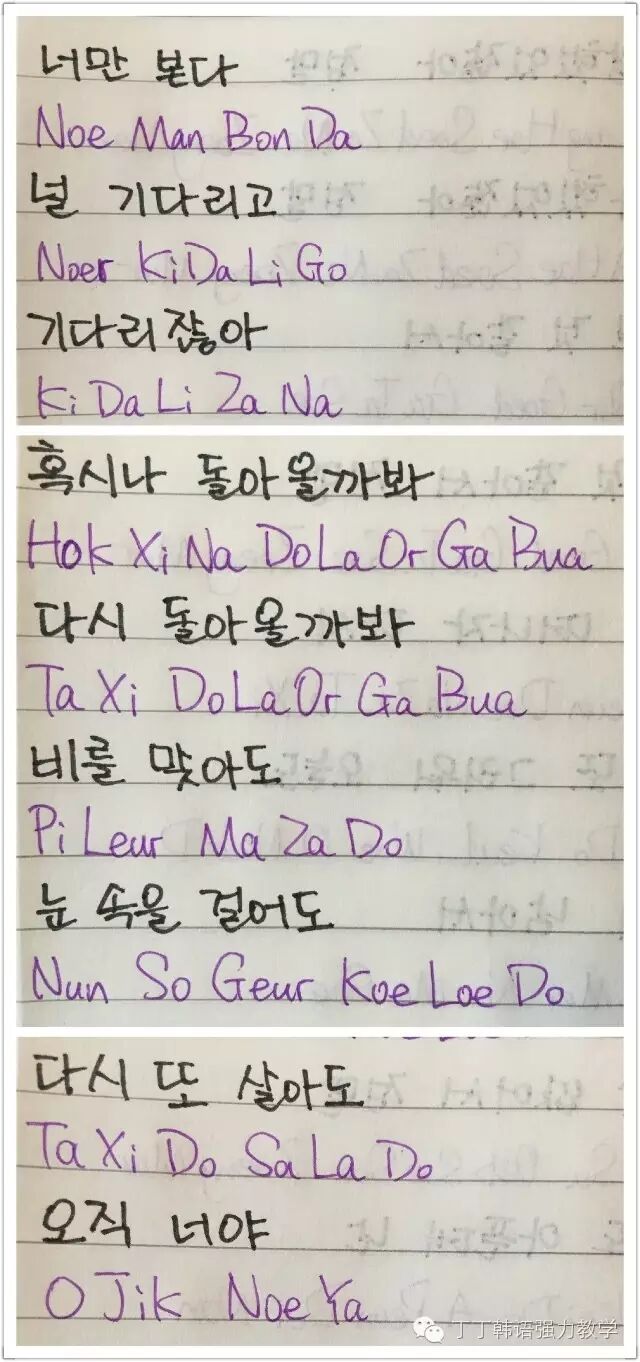 너만 본다
Noe Man Bon Da
널 기다리고
Noer Ki Da Li Go
기다리잖아
Ki Da Li Za Na
혹시나 돌아올까봐
Hok Xi Na Do La Or Ga Bua
다시 돌아올까봐
Ta Xi Do La Or Ga Bua
비를 맞아도
Pi Leur Ma Za Do
눈 속을 걸어도
Nun So Geur Koe Loe Do
다시 또 살아도
Ta Xi Do Sa La Do
오직 너야
O Jik Noe Ya
丁丁韩语强力教学